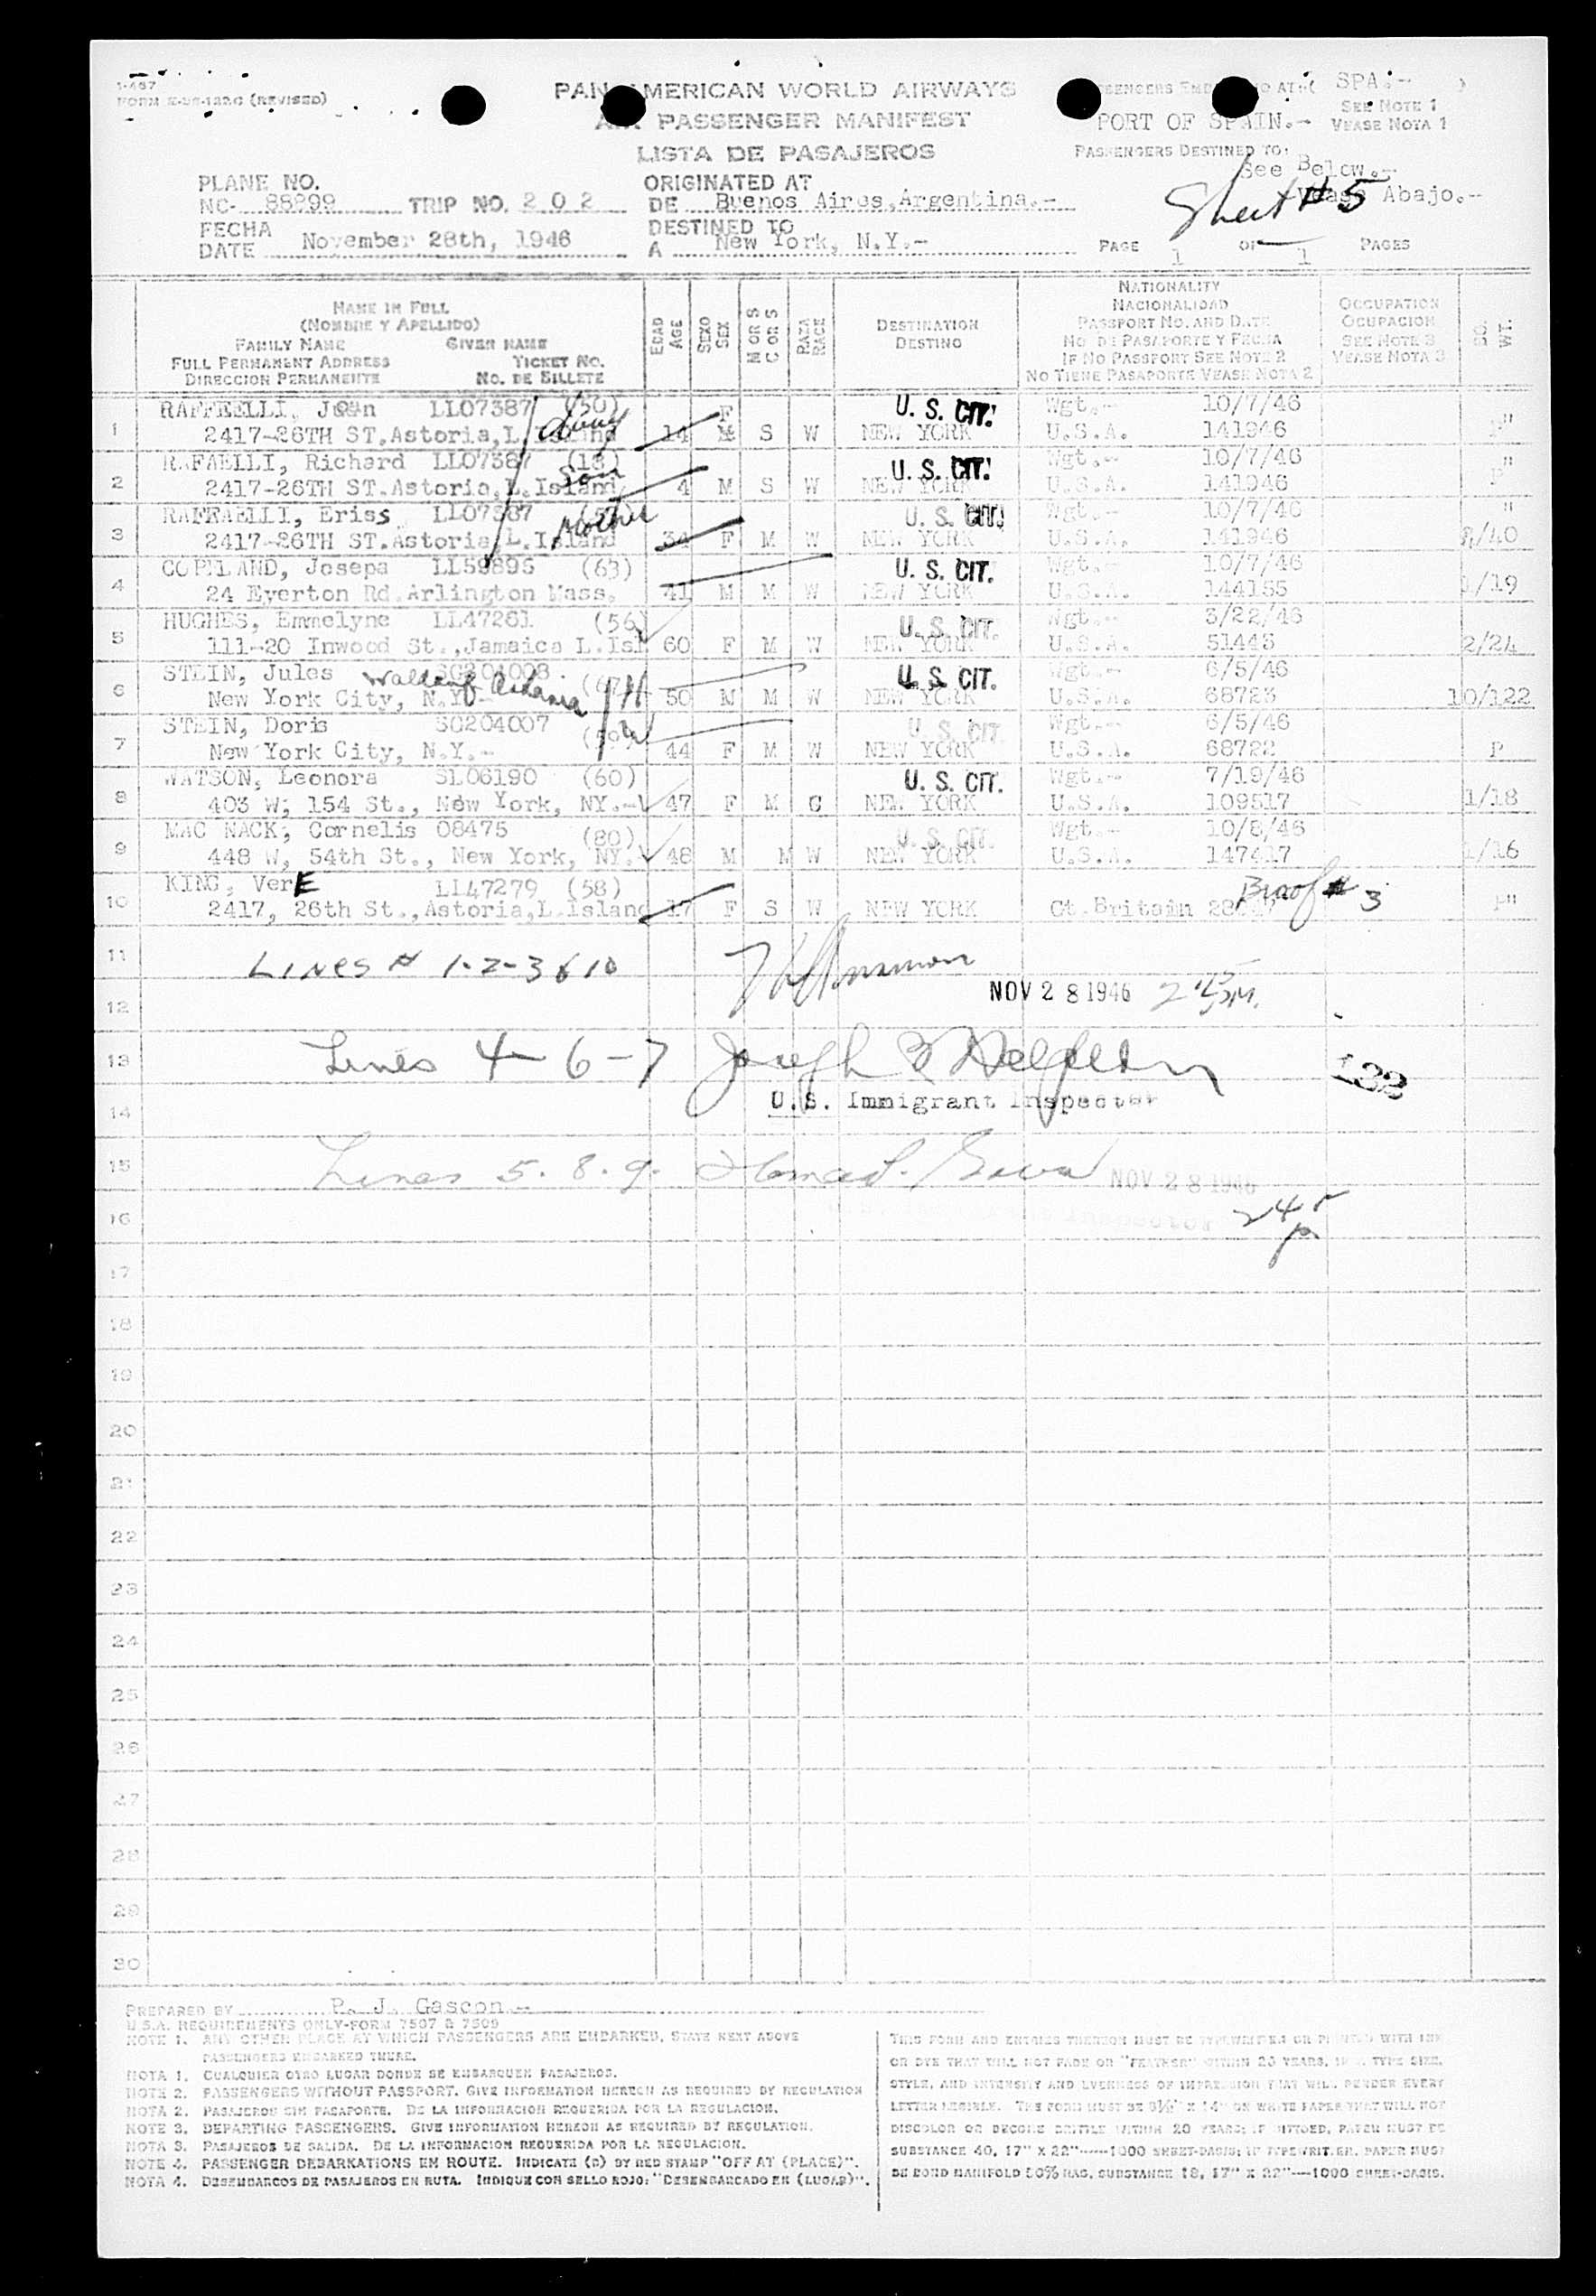 I-467
FORM (REVISED)
PAN AMERICAN WORLD AIRWAYS
PASSENGER MANIFEST
LISTA DE PASAJEROS
AT:( SPA.- )
SEE NOTE 1
PORT OF SPAIN.- VEASE NOTA 1
PASSENGERS DESTINED TO:
See Below.-
Abajo.-
Sheet #5
PLANE NO.
NC- 88899 TRIP NO. 2 0 2
ORIGINATED AT
DE Buenos Aires, Argentina.-
FECHA
DATE November 28th, 1946
DESTINED TO
A New York, N.Y.-
PAGE 1 OF 1 PAGES
NAME IN FULL
(NOMBRE Y APELLIDO)
FAMILY NAME GIVEN NAME
FULL PERMANENT ADDRESS TICKET NO.
DIRECCION PERMANENTE NO. DE BILLETE
EDAD AGE
SEXO SEX
M OR S C O S
RAZA RACE
DESTINATION
DESTINO
NATIONALITY
NACIONALIDAD
PASSPORT NO. AND DATE
NO. DE PASAPORTE Y FECHA
IF NO PASSPORT SEE NOTE 2
NO TIENE PASAPORTE VEASE NOTA 2
OCCUPATION
OCUPACION
SEE NOTE 3
VEASE NOTA 3
WT.
1 RAFFEELLI, Joan LL07387 (50) U. S. CIT. Wgt.- 10/7/46
2417-26TH ST.Astoria,L.Island 14 F S W NEW YORK U.S.A. 141946 P"
2 RAFAELLI, Richard LL07387 (18) son U. S. CIT. Wgt.- 10/7/46
2417-26TH ST.Astoria,L.Island 4 M S W NEW YORK U.S.A. 141946 P"
3 RAFFAELLI, Eriss LL07387 Mother U. S. CIT. Wgt.- 10/7/46 "
2417-26TH ST.Astoria,L.Island 34 F M W NEW YORK U.S.A. 141946
4 COPELAND, Josepa LL59896 (63) U. S. CIT. Wgt.- 10/7/46
24 Eyerton Rd.Arlington Mass. 41 M M W NEW YORK U.S.A. 144155 1/19
5 HUGHES, Emmelyne LL47281 (56) U. S. CIT. Wgt.- 3/22/46
111-20 Inwood St.,Jamaica L.Isl 60 F M W NEW YORK U.S.A. 51443 2/24
6 STEIN, Jules SC204008 U. S. CIT. Wgt.- 6/5/46
New York City, N.Y.- 50 M M W NEW YORK U.S.A. 68723 10/122
7 STEIN, Doris SC204007 U. S. CIT. Wgt.- 6/5/46
New York City, N.Y.- 44 F M W NEW YORK U.S.A. 68722 P
8 WATSON, Leonora SL06190 (60) U. S. CIT. Wgt.- 7/19/46
403 W; 154 St., New York, NY.- 47 F M C NEW YORK U.S.A. 109517 1/18
9 MAC NACK; Cornelis 08475 (80) U. S. CIT. Wgt.- 10/8/46
448 W, 54th St., New York, NY. 48 M M W NEW YORK U.S.A. 147417 1/16
10 KING, VerE LL47279 (58)
2417, 26th St.,Astoria,L.Island 17 F S W NEW YORK Gt Britain # 3 P"
11 LINES # 1-2-3 & 10
12 NOV 28 1946 2 45 PM.
13 Lines 4-6-7 Joseph
132
14 U.S. Immigrant Inspector
15 Lines 5. 8. 9. NOV 28 1946
16 Inspector 2 45 p
17
18
19
20
21
22
23
24
25
26
27
28
29
30
PREPARED BY P. J. Gascon.-
U.S.A. REQUIREMENTS ONLY-FORM 7507 & 7509
NOTE 1. ANY OTHER PLACE AT WHICH PASSENGERS ARE EMBARKED, STATE NEXT ABOVE
PASSENGERS EMBARKED THERE.
NOTA 1. CUALQUIER OTRO LUGAR DONDE SE EMBARQUEN PASAJEROS.
NOTE 2. PASSENGERS WITHOUT PASSPORT. GIVE INFORMATION HEREON AS REQUIRED BY REGULATION
NOTA 2. PASAJEROS SIN PASAPORTE. DE LA INFORMACION REQUERIDA POR LA REGULACION.
NOTE 3. DEPARTING PASSENGERS. GIVE INFORMATION HEREON AS REQUIRED BY REGULATION.
NOTA 3. PASAJEROS DE SALIDA. DE LA INFORMACION REQUERIDA POR LA REGULACION.
NOTE 4. PASSENGER DEBARKATIONS EN ROUTE. INDICATE (D) BY RED STAMP "OFF AT (PLACE)".
NOTA 4. DESEMBARCOS DE PASAJEROS EN RUTA. INDIQUE CON SELLO ROJO: "DESEMBARCADO EN (LUGAR)".
THIS FORM AND ENTRIES THEREON MUST BE TYPEWRITTEN OR PRINTED WITH INK
OR DYE THAT WILL NOT FADE OR "FEATHER" WITHIN 20 YEARS, TYPE SIZE,
STYLE, AND INTENSITY AND EVENNESS OF IMPRESSION THAT WILL RENDER EVERY
LETTER LEGIBLE. THE FORM MUST BE 8½" X 14" ON WHITE PAPER THAT WILL NOT
DISCOLOR OR BECOME BRITTLE WITHIN 20 YEARS; IF DITTOED, PAPER MUST BE
SUBSTANCE 40, 17" X 22"-----1000 SHEET-BASIS; IF TYPEWRITTEN, PAPER MUST
BE BOND MANIFOLD 50% RAG, SUBSTANCE 18, 17" X 22"----1000 SHEET-BASIS.